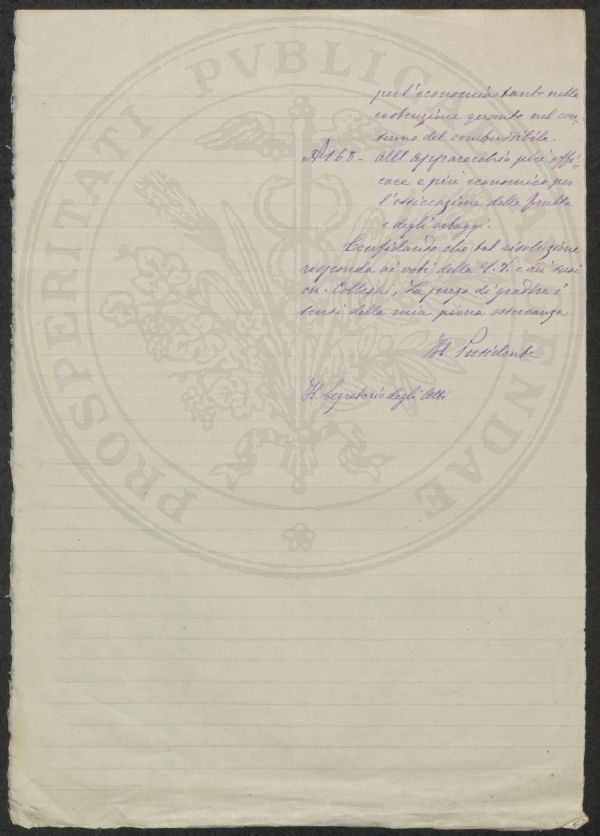 per l'economia tanto nella
costruzione quanto nel con-
sumo del combustibile.
N 168 - All'Apparecchio più effi-
cace e più economico per
l'essiccazione delle frutta
e degli ortaggi.
Confidando che tal risoluzione
risponda ai voti della S.V. e dei suoi
on. Colleghi, La prego di gradire i
sensi della mia piena osservanza
Il Presidente
Il Segretario degli Atti
PROSPERITATI PVBLICAE AVGENDAE